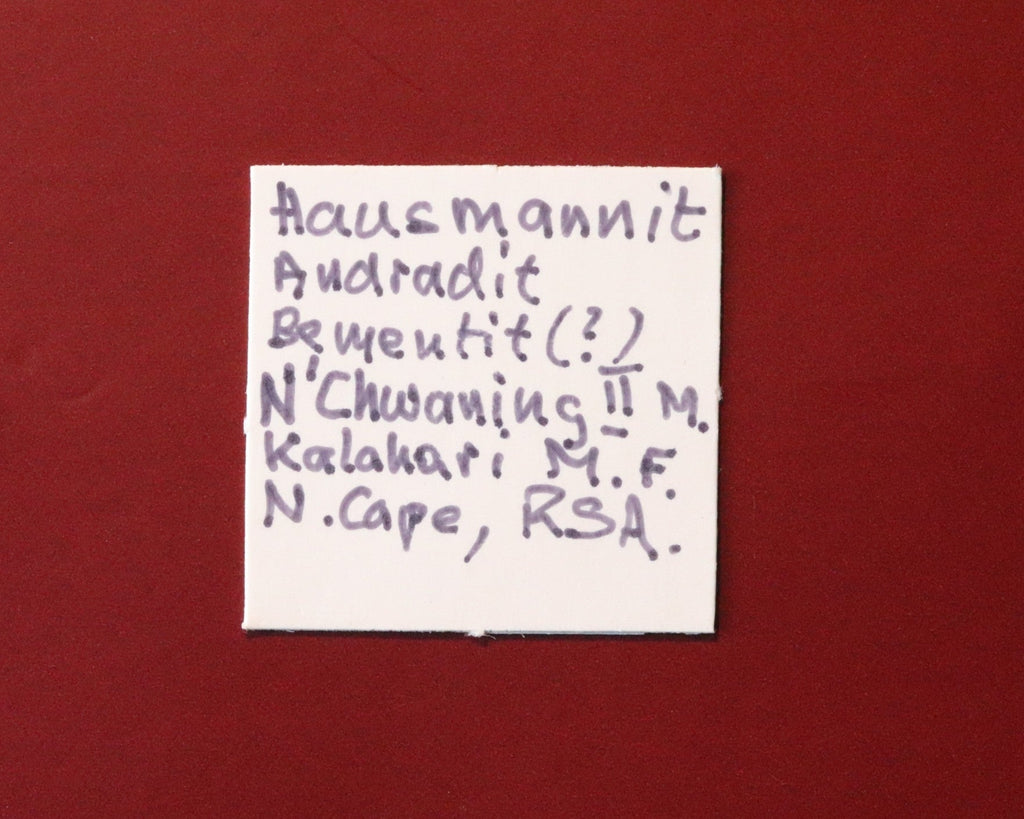 Hausmannit
Andradit
Bementit (?)
N'Chwaning II M.
Kalahari M. F.
N. Cape, RSA.